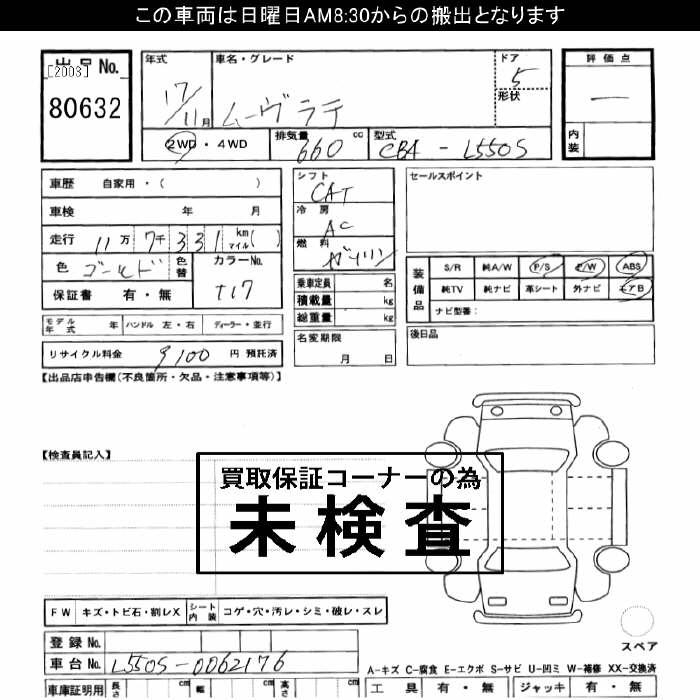 この車両は日曜日AM8:30からの搬出となります
出品No.
[2003]
80632
年式
17/11月
車名・グレード
ムーヴラテ
ドア
5
形状
2WD・4WD
排気量
660 cc
型式
CBA - L550S
評価点
―
内装
車歴 自家用・( )
車検 年 月
走行 11万7千331 km マイル( )
色 ゴールド 色替
カラーNo.
T17
保証書 有・無
シフト
CAT
冷房
AC
燃料
ガソリン
乗車定員 名
積載量 kg
総重量 kg
セールスポイント
装備品
S/R 純A/W P/S P/W ABS
純TV 純ナビ 革シート 外ナビ エアB
ナビ型番:
モデル年式 年 ハンドル 左・右 ディーラー・並行
名変期限
月 日
後日品
リサイクル料金 9100 円 預託済
【出品店申告欄(不良箇所・欠品・注意事項等)】
【検査員記入】
買取保証コーナーの為
未検査
FW キズ・トビ石・割レX シート内装 コゲ・穴・汚レ・シミ・破レ・スレ
登録No.
車台No. L550S-0062176
スペア
A-キズ C-腐食 E-エクボ S-サビ U-凹ミ W-補修 XX-交換済
車庫証明用 長さ cm 幅 cm 高さ cm
工具 有・無 ジャッキ 有・無